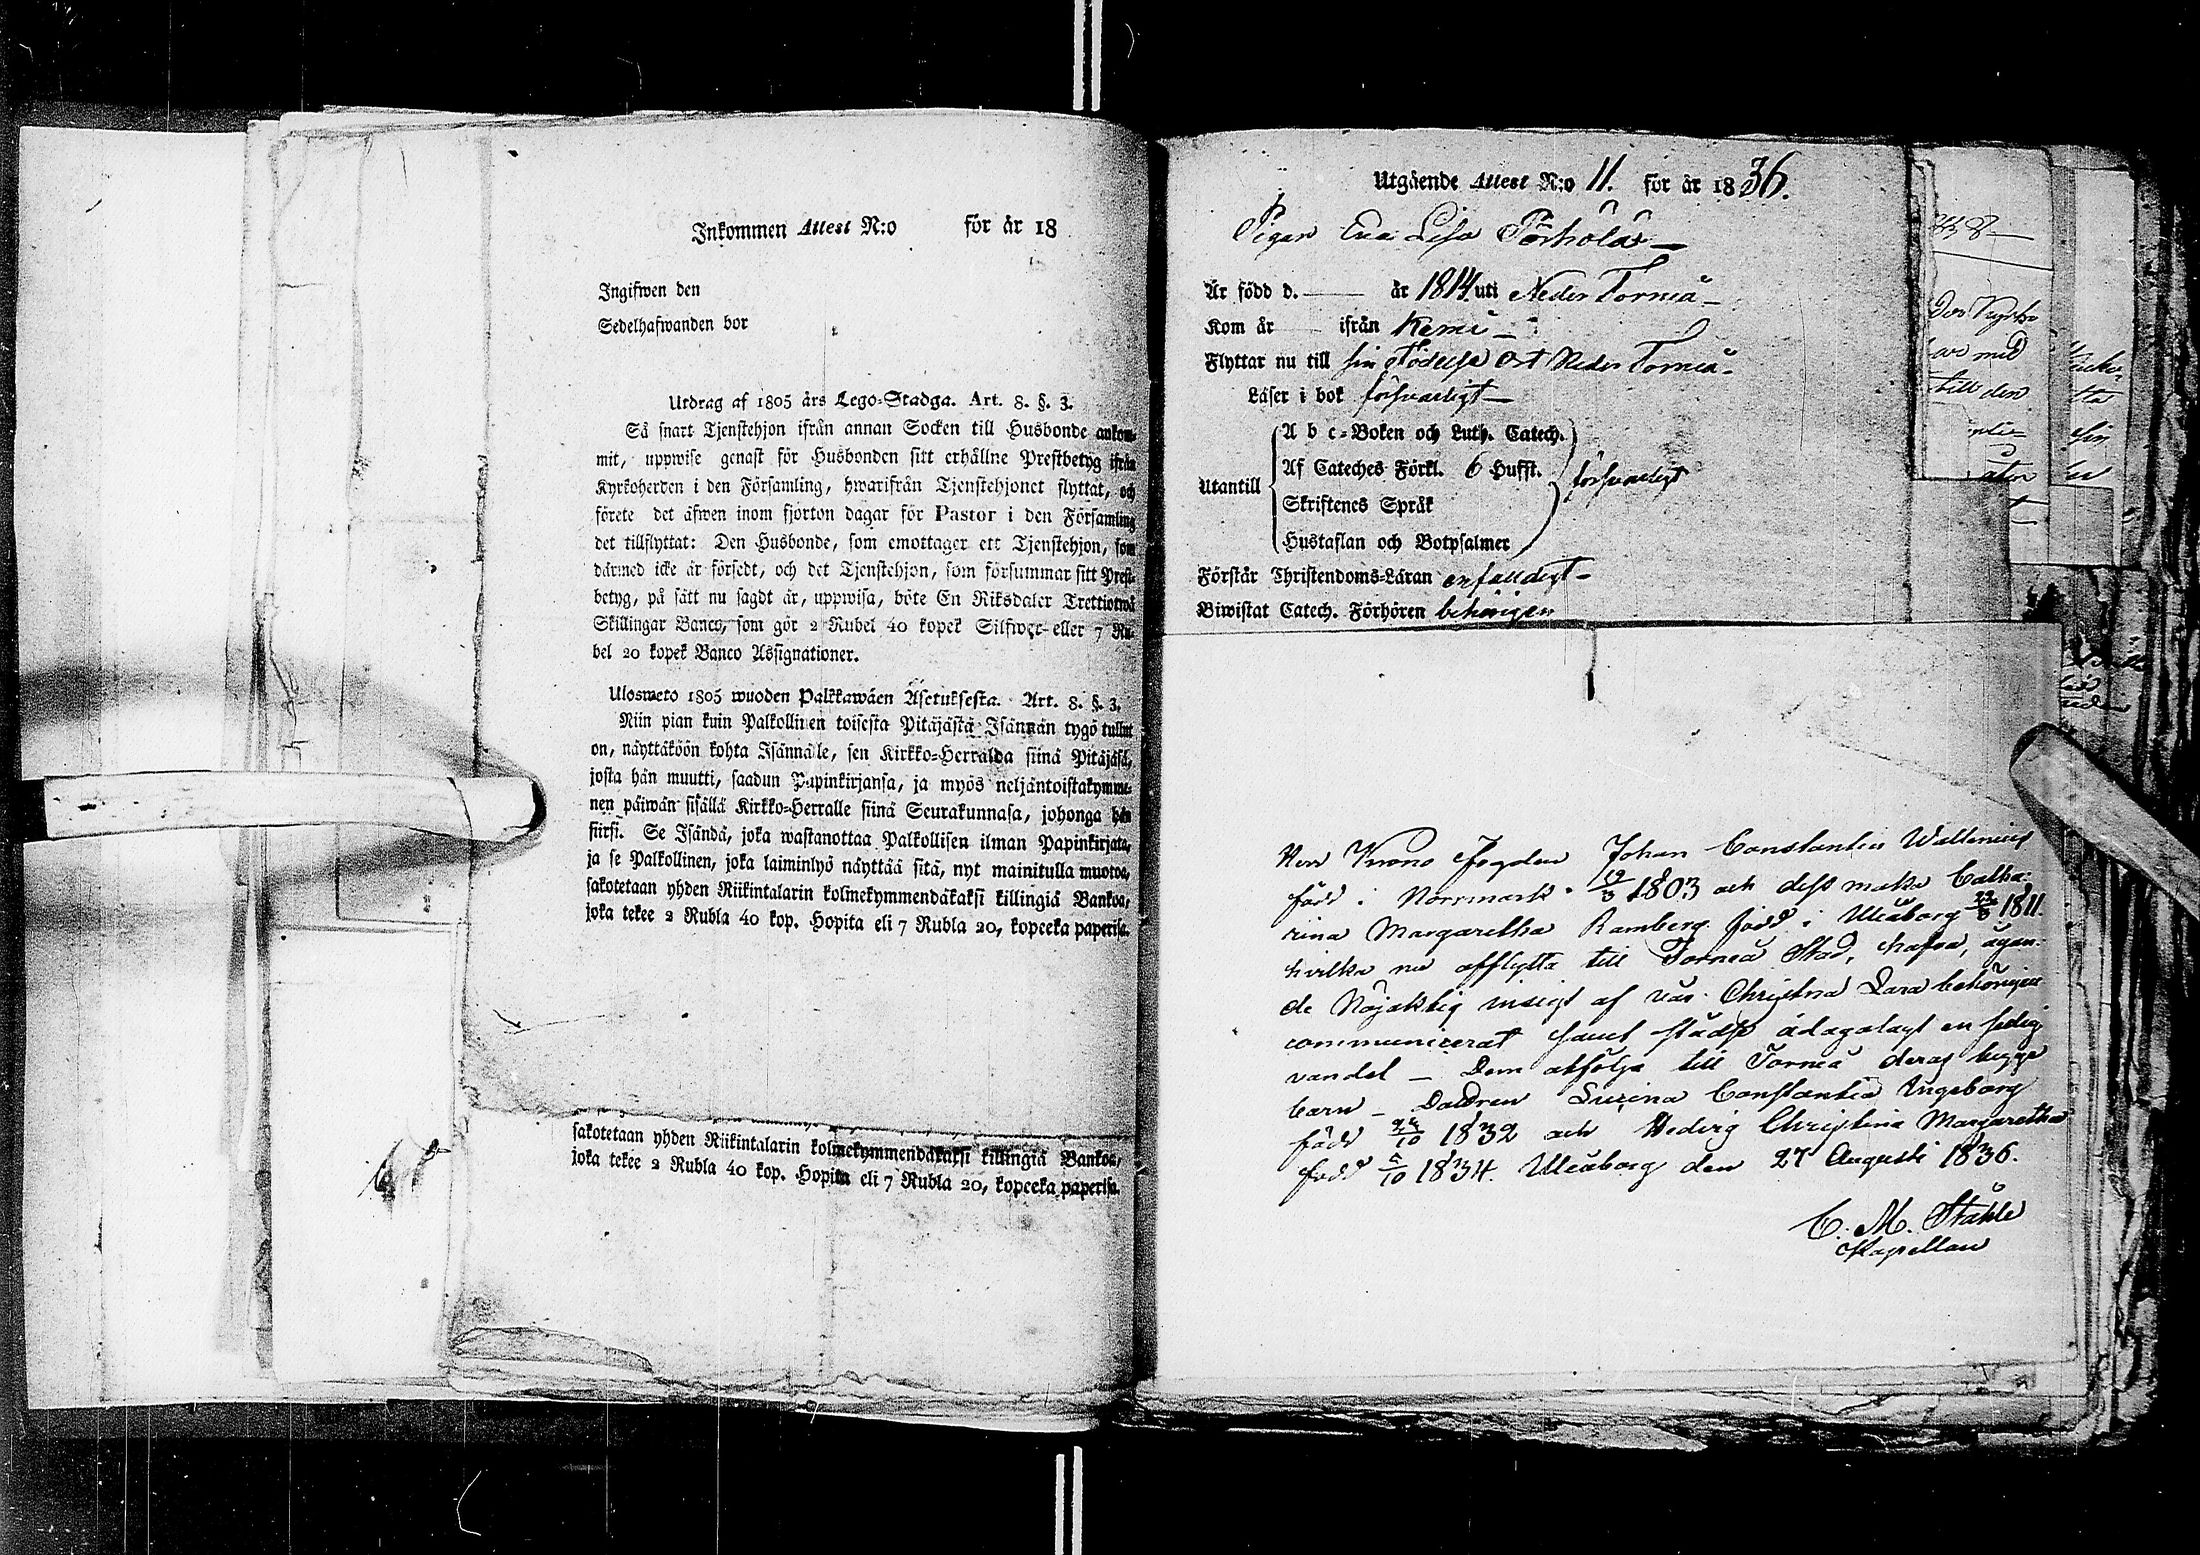 Inkommen Attest N:o för år 18
Ingifwen den
Sedelhafwanden bor
Utdrag af 1805 års Lego-Stadga. Art. 8. §. 3.
Så snart Tjenstehjon ifrån annan Socken till Husbonde ankom-
mit, uppwise genast för Husbonden sitt erhållne Prestbetyg ifrån
Kyrkoherden i den Församling, hwarifrån Tjenstehjonet flyttat, och
förete det äfwen inom fjorton dagar för Pastor i den Församling
det tillflyttat: Den Husbonde, som emottager ett Tjenstehjon, som
därmed icke är försedt, och det Tjenstehjon, som försummar sitt Prest-
betyg, på sätt nu sagdt är, uppwisa, böte En Riksdaler Trettiotwå
Skillingar Banco, som gör 2 Rubel 40 kopek Silfwer eller 7 Ru-
bel 20 kopek Banco Assignationer.
Ulosweto 1805 wuoden Palkkawäen Asetuksesta. Art. 8. §. 3.
Niin pian kuin Palkollinen toisesta Pitäjästä Isännän tygö tullut
on, näyttäköön kohta Isännälle, sen Kirkko-Herralda siinä Pitäjäsä,
josta hän muutti, saadun Papinkirjansa, ja myös neljäntoistakymme-
nen päiwän sisällä Kirkko-Herralle siinä Seurakunnasa, johonga hän
siirsi. Se Isändä, joka wastanottaa Palkollisen ilman Papinkirjata,
ja se Palkollinen, joka laiminlyö näyttää sitä, nyt mainitulla muotoa,
sakotetaan yhden Riikintalarin kolmekymmendäkaksi killingiä Bankoa,
joka tekee 2 Rubla 40 kop. Hopita eli 7 Rubla 20, kopceka paperisa.
sakotetaan yhden Riikintalarin kolmekymmendäkaksi killingiä Bankoa,
joka tekee 2 Rubla 40 kop. Hopita eli 7 Rubla 20, kopceka paperisa.
Utgående Attest N:o 11. för år 1836.
Pigan Eva Lisa
Är född d. — år 1814 uti Neder Torneå
Kom år — ifrån Kemi
Flyttar nu till sin Födelse Ort Neder Torneå.
Läser i bok försvarligt
A b c-Boken och Luth. Catech.
Af Cateches Förkl. 6 Hufst.
Utantill försvarligt
Skriftenes Språk
Hustaflan och Botpsalmer
Förstår Christendoms-Läran enfaldigt
Biwistat Catech. Förhören behörigen
Herr Krono Fogden Johan Constantin Wallenius
född i Norrmark 12/3 1803 och dess maka Catha-
rina Margaretha Ramberg född i Uleåborg 1811.
hvilka nu afflytta till Torneå Stad, hafva, ägan-
de Nöjaktig insigt af vår Christna Lära behörigen
communicerat samt städse ådagalagt en sedig
vandel — Dem åtfölja till Torneå deras begge
barn — Döttren Constantia Ingeborg
född 1832 och Hedvig Christina Margaretha
född 5/10 1834. Uleåborg den 27 Augusti 1836.
C. M. Ståhle
Kapellan
till den